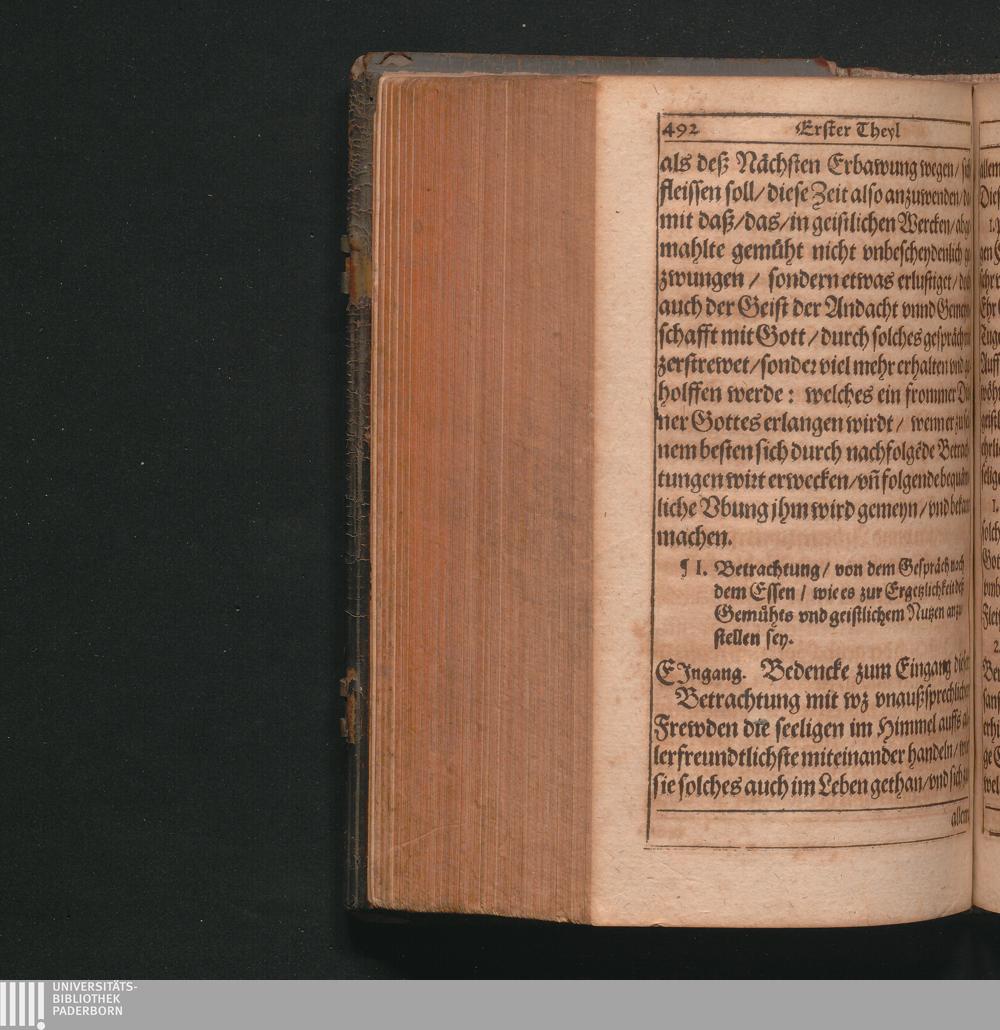 492 Erster Theyl
als deß Nächsten Erbawung wegen / sich
fleissen soll / diese Zeit also anzuwenden /
mit daß / das / in geistlichen Wercken /
mahlte gemüht nicht vnbescheydenlich
zwungen / sondern etwas erlustiget /
auch der Geist der Andacht vnnd
schafft mit Gott / durch solches gespräch
zerstrewet / sonder viel mehr erhalten vnd
holffen werde : welches ein frommer
ner Gottes erlangen wirdt / wenn er
nem besten sich durch nachfolgēde
tungen wirt erwecken / vñ folgende
liche Vbung jhm wird gemeyn / vnd
machen.
¶ I. Betrachtung / von dem Gespräch nach
dem Essen / wie es zur Ergetzlichkeit deß
Gemühts vnd geistlichem Nutzen anzu
stellen sey.
EJngang. Bedencke zum Eingang dieser
Betrachtung mit wz vnaußsprechlichen
Frewden die seeligen im Himmel auffs
lerfreundtlichste miteinander handeln /
sie solches auch im Leben gethan / vnd sich
allem
UNIVERSITÄTS-
BIBLIOTHEK
PADERBORN